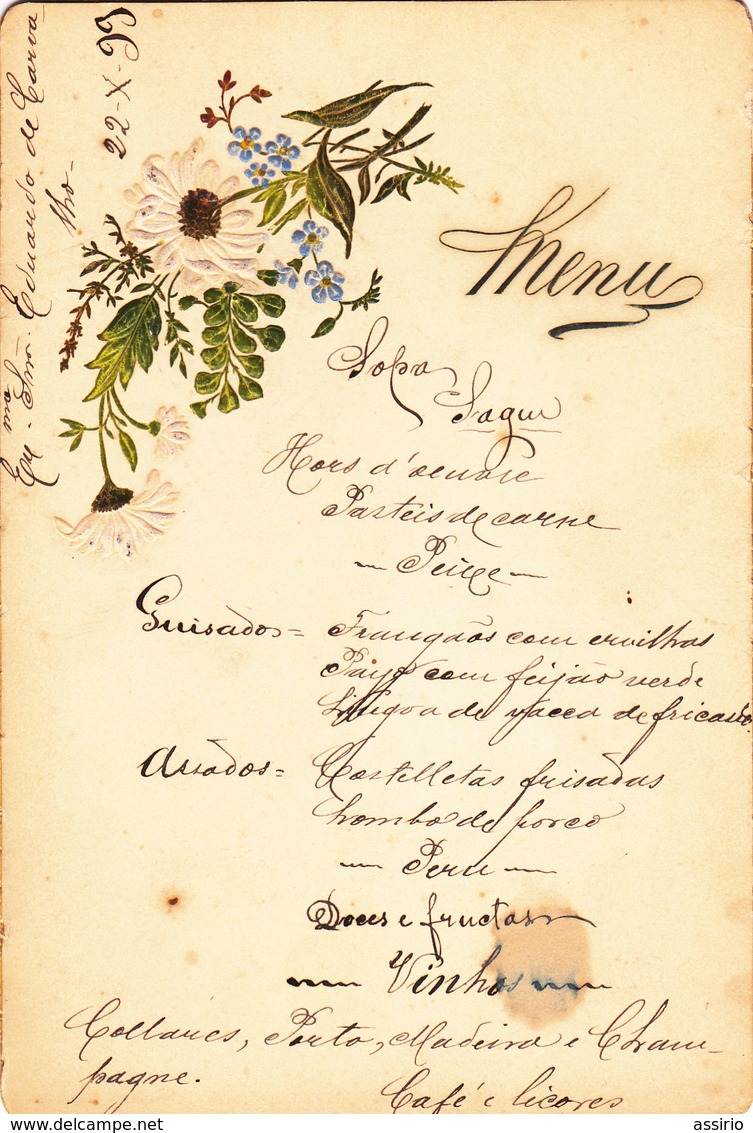 Exmo. Snr. Eduardo de Carva
lho-
22-X-93
Menu
Sopa
Sagu
Hors d'oeuvre
Pasteis de carne
Peixe
Guisados = Frangãos com ervilhas
Payo com feijão verde
Lingoa de vacca de fricassé
Assados = Costelletas frisadas
Lombo de porco
Peru
Doces e fructas
Vinhos
Collares, Porto, Madeira e Cham-
pagne.
Café e licores
assirio